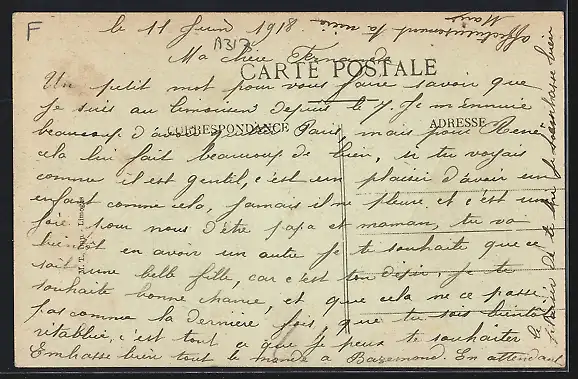 F
le 11 Juin 1918
A317
Ma chère Fernande
CARTE POSTALE
Un petit mot pour vous faire savoir que
je suis au limousin depuis le 7. Je m'ennuie
beaucoup d'avoir Paris, mais pour René
CORRESPONDANCE
ADRESSE
cela lui fait beaucoup de bien, si tu voyais
comme il est gentil, c'est un plaisir d'avoir un
enfant comme cela, jamais il ne pleure, et c'est une
joie pour nous d'être papa et maman, tu va
bientôt en avoir un autre je te souhaite que ce
soit une belle fille, car c'est ton désir, je te
souhaite bonne chance, et que cela ne ce passe
pas comme la dernière fois, que tu sois bientôt
rétablie, c'est tout ce que je peux te souhaiter
Embrasse bien tout le monde à Bazemond. En attendant
le plaisir de te lire je t'embrasse bien
affectueusement ta
Marie
Limoges